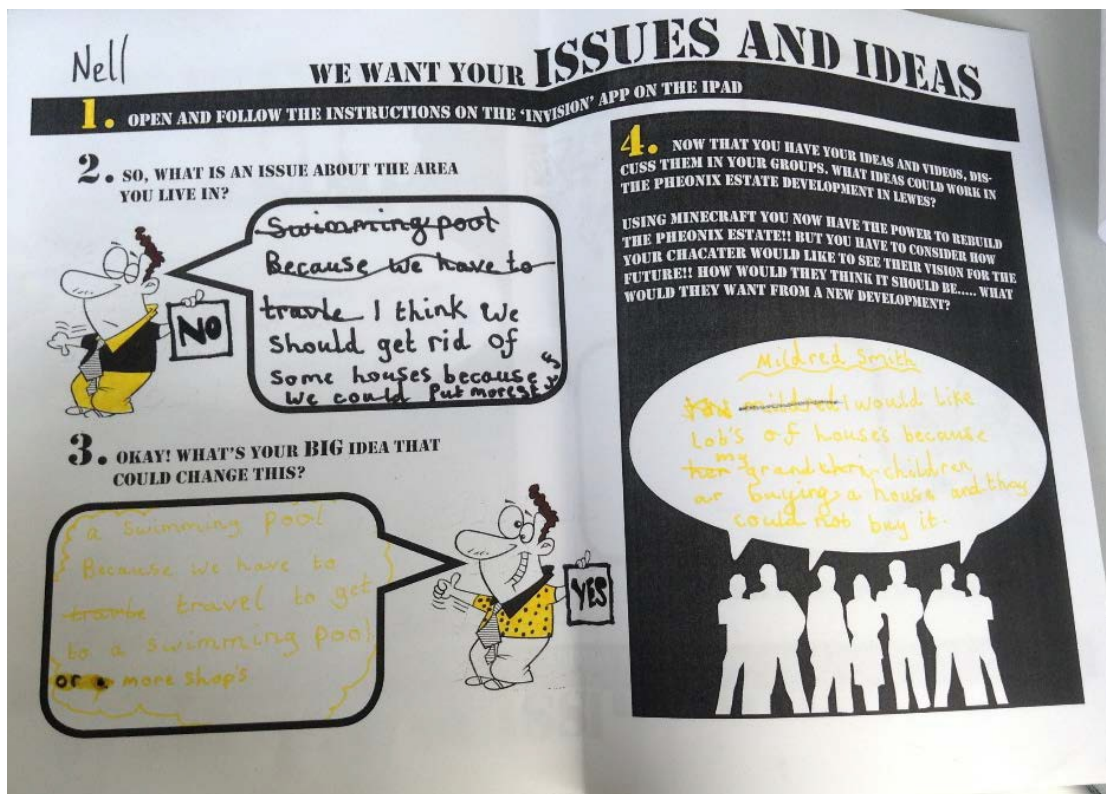 Nell
WE WANT YOUR ISSUES AND IDEAS
1. OPEN AND FOLLOW THE INSTRUCTIONS ON THE 'INVISION' APP ON THE IPAD
2. SO, WHAT IS AN ISSUE ABOUT THE AREA
YOU LIVE IN?
Swimming pool
Because we have to
travle I think we
should get rid of
some houses because
we could put more
NO
3. OKAY! WHAT'S YOUR BIG IDEA THAT
COULD CHANGE THIS?
a swimming pool
Because we have to
travle travel to get
to a swimming pool
or a more shop's
YES
4. NOW THAT YOU HAVE YOUR IDEAS AND VIDEOS, DIS-
CUSS THEM IN YOUR GROUPS. WHAT IDEAS COULD WORK IN
THE PHEONIX ESTATE DEVELOPMENT IN LEWES?
USING MINECRAFT YOU NOW HAVE THE POWER TO REBUILD
THE PHEONIX ESTATE!! BUT YOU HAVE TO CONSIDER HOW
YOUR CHACATER WOULD LIKE TO SEE THEIR VISION FOR THE
FUTURE!! HOW WOULD THEY THINK IT SHOULD BE..... WHAT
WOULD THEY WANT FROM A NEW DEVELOPMENT?
Mildred Smith
mildred I would like
lob's of houses because
her my grand children
ar buying a house and they
could not buy it.